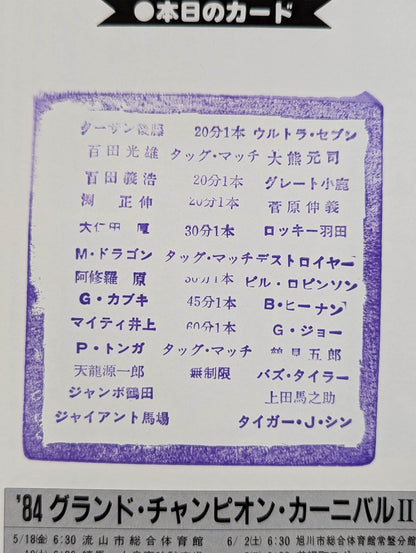 ●本日のカード
ターザン後藤 20分1本 ウルトラ・セブン
百田光雄 タッグ・マッチ 大熊元司
百田義浩 20分1本 グレート小鹿
渕 正伸 20分1本 菅原伸義
大仁田 厚 30分1本 ロッキー羽田
M・ドラゴン タッグ・マッチ デストロイヤー
阿修羅 原 30分1本 ビル・ロビンソン
G・カブキ 45分1本 B・ヒーナン
マイティ井上 60分1本 G・ジョー
P・トンガ タッグ・マッチ 鶴見五郎
天龍源一郎 無制限 バズ・タイラー
ジャンボ鶴田 上田馬之助
ジャイアント馬場 タイガー・J・シン
'84 グランド・チャンピオン・カーニバルII
5/18㊎ 6:30 流山市総合体育館 6/2㊏ 6:30 旭川市総合体育館常盤分館